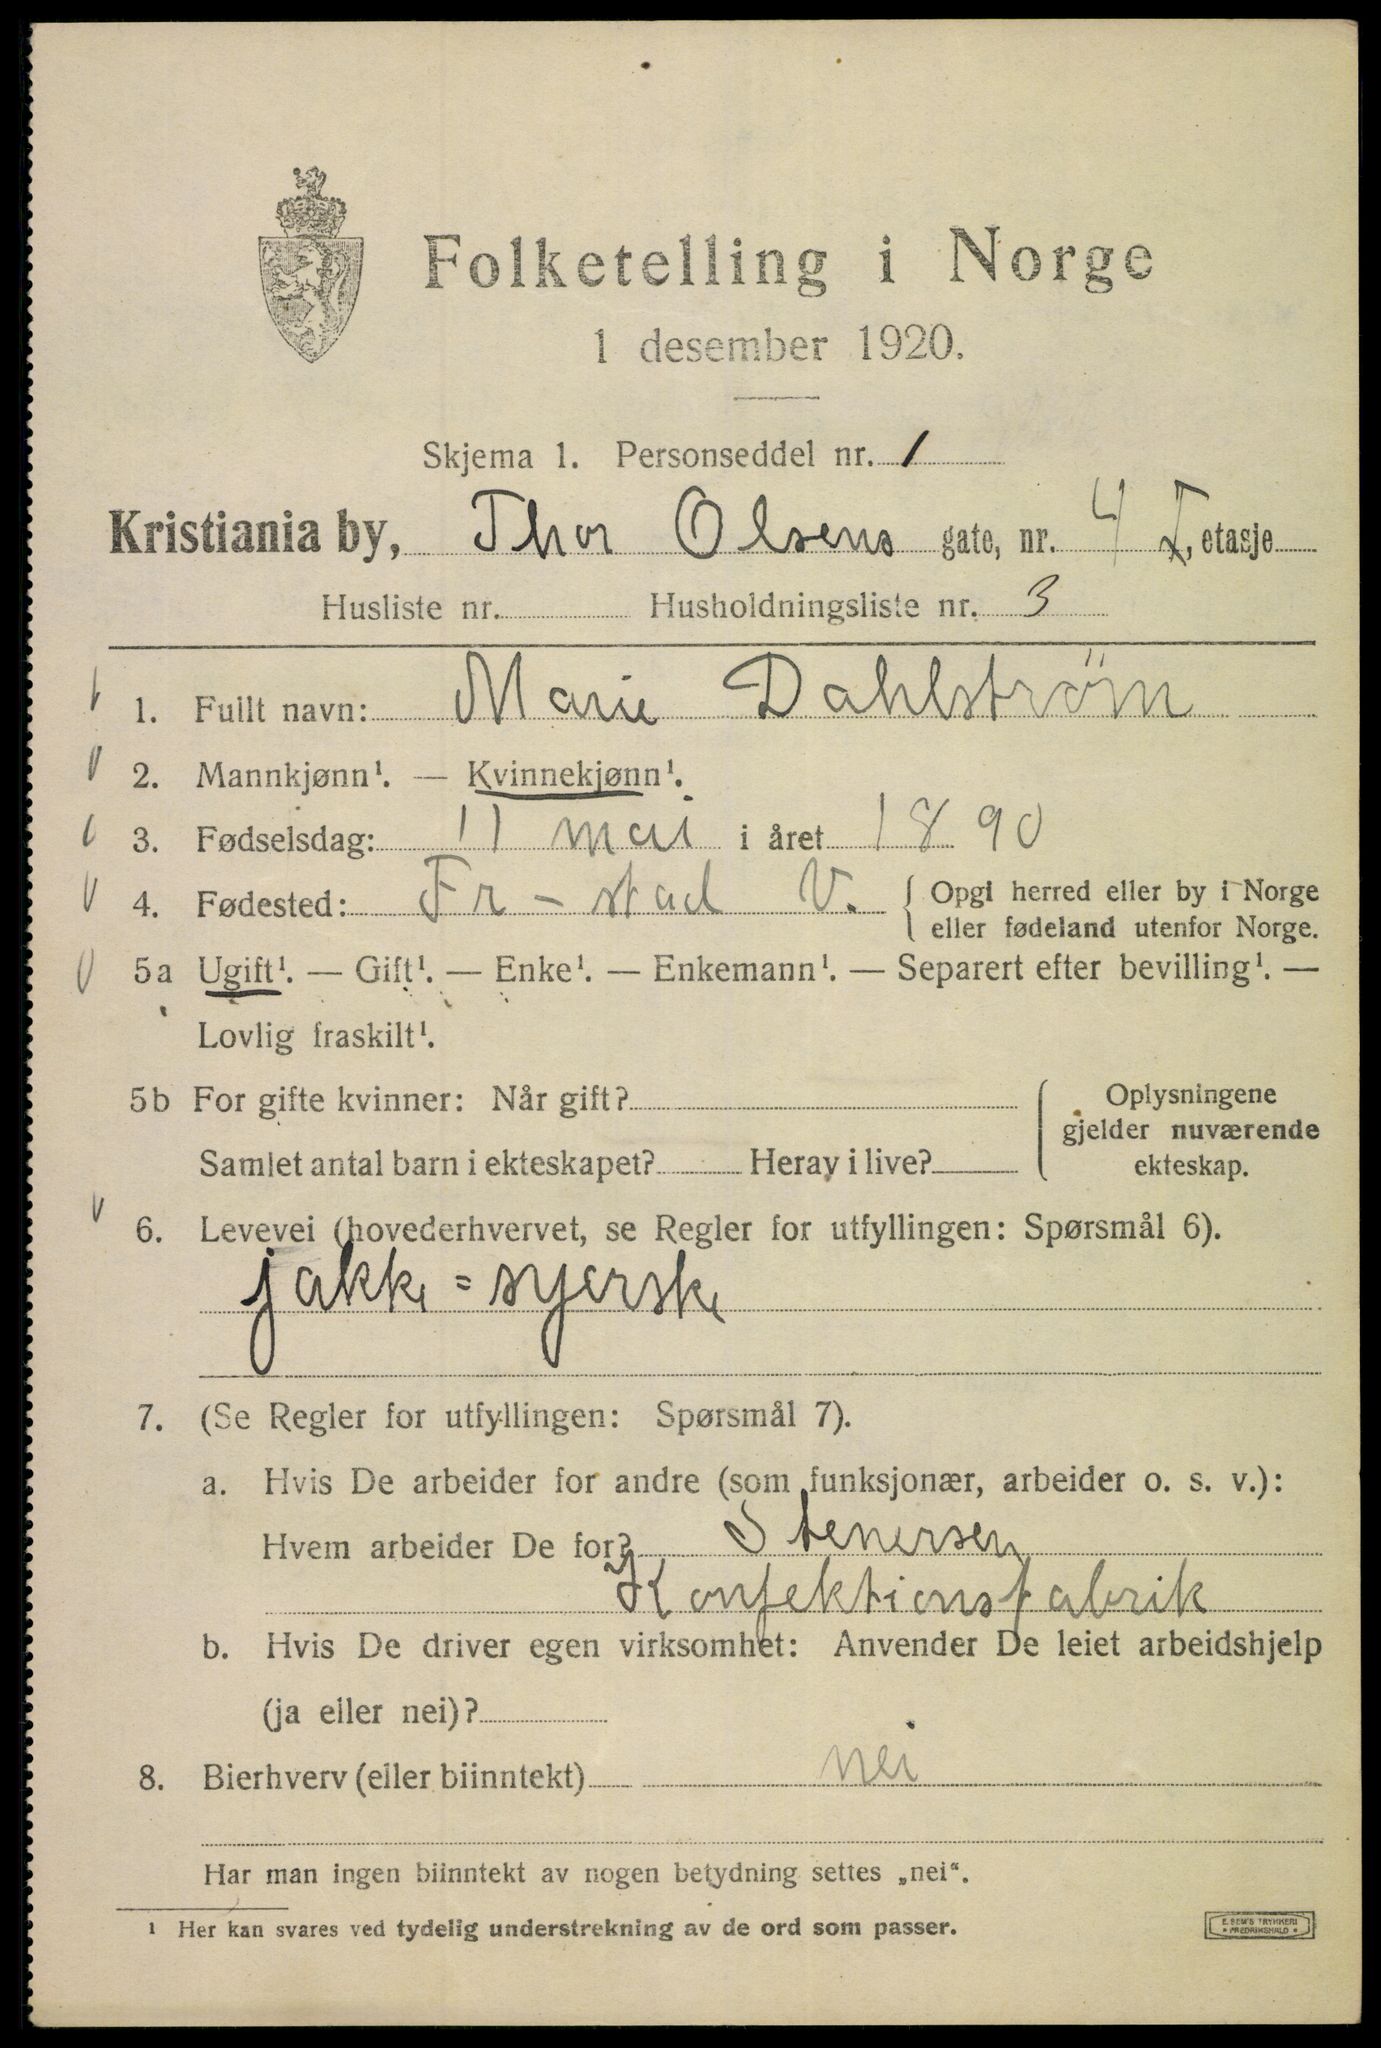 Folketelling i Norge
1 desember 1920.
Skjema 1. Personseddel nr. 1
Kristiania by, Thor Olsens gate, nr. 4 I, etasje
Husliste nr. Husholdningsliste nr. 3
1. Fullt navn: Marie Dahlström
2. Mannkjønn¹. — Kvinnekjønn¹.
3. Fødselsdag: 11 mai i året 1890
4. Fødested: Fr-stad V. { Opgi herred eller by i Norge
eller fødeland utenfor Norge.
5a Ugift¹. — Gift¹. — Enke¹. — Enkemann¹. — Separert efter bevilling¹. —
Lovlig fraskilt¹.
5b For gifte kvinner: Når gift? { Oplysningene
gjelder nuværende
Samlet antal barn i ekteskapet? Herav i live? ekteskap.
6. Levevei (hovederhvervet, se Regler for utfyllingen: Spørsmål 6).
jakke=syerske
7. (Se Regler for utfyllingen: Spørsmål 7).
a. Hvis De arbeider for andre (som funksjonær, arbeider o. s. v.):
Hvem arbeider De for? Stenersen
Konfektionsfabrik
b. Hvis De driver egen virksomhet: Anvender De leiet arbeidshjelp
(ja eller nei)?
8. Bierhverv (eller biinntekt) nei
Har man ingen biinntekt av nogen betydning settes „nei“.
¹ Her kan svares ved tydelig understrekning av de ord som passer.
E. SEM'S TRYKKERI
* FREDRIKSHALD *